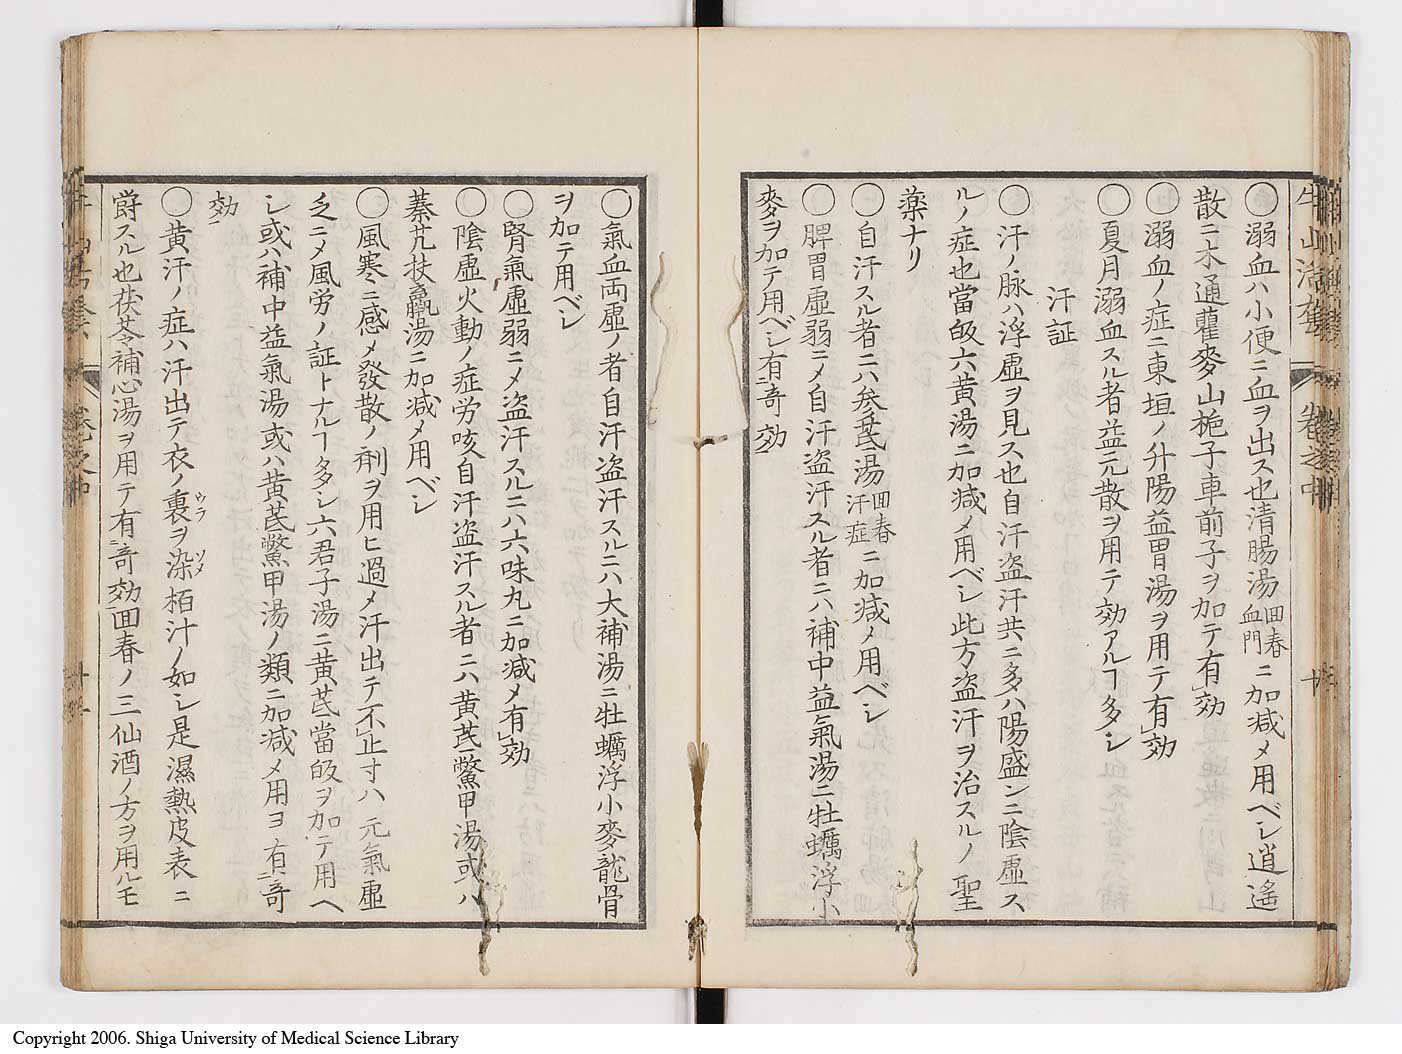 〇溺血ハ小便ニ血ヲ出ス也清腸湯回春血門ニ加减乄用ベシ逍遥
散ニ木通藿麥山梔子車前子ヲ加テ有効
〇溺血ノ症ニ東垣ノ升陽益胃湯ヲ用テ有効
〇夏月溺血スル者益元散ヲ用テ効アルヿ多シ
汗証
〇汗ノ脉ハ浮虚ヲ見ス也自汗盗汗共ニ多ハ陽盛ンニ陰虚ス
ルノ症也當皈六黄湯ニ加减乄用ベシ此方盗汗ヲ治スルノ聖
薬ナリ
〇自汗スル者ニハ参芪湯回春汗症ニ加减乄用ベシ
〇脾胃虚弱ニ乄自汗盗汗スル者ニハ補中益氣湯ニ牡蠣浮小
麥ヲ加テ用ベシ有竒効
〇氣血両虚ノ者自汗盗汗スルニハ大補湯ニ牡蠣浮小麥龍骨
ヲ加テ用ベシ
〇腎氣虚弱ニ乄盗汗スルニハ六味丸ニ加减乄有効
〇陰虚火動ノ症労咳自汗盗汗スル者ニハ黄芪鱉甲湯或ハ
秦艽扶羸湯ニ加减乄用ベシ
〇風寒ニ感乄發散ノ剤ヲ用ヒ過乄汗出テ不止寸ハ元氣虚
乏ニ乄風労ノ証トナルヿ多シ六君子湯ニ黄芪當皈ヲ加テ用ヘ
シ或ハ補中益氣湯或ハ黄芪鱉甲湯ノ類ニ加减乄用ヨ有竒
効
〇黄汗ノ症ハ汗出テ衣ノ裏ヲ染栢汁ノ如シ是濕熱皮表ニ
欝スル也茯苓補心湯ヲ用テ有竒効回春ノ三仙酒ノ方ヲ用ルモ
Copyright 2006. Shiga University of Medical Science Library